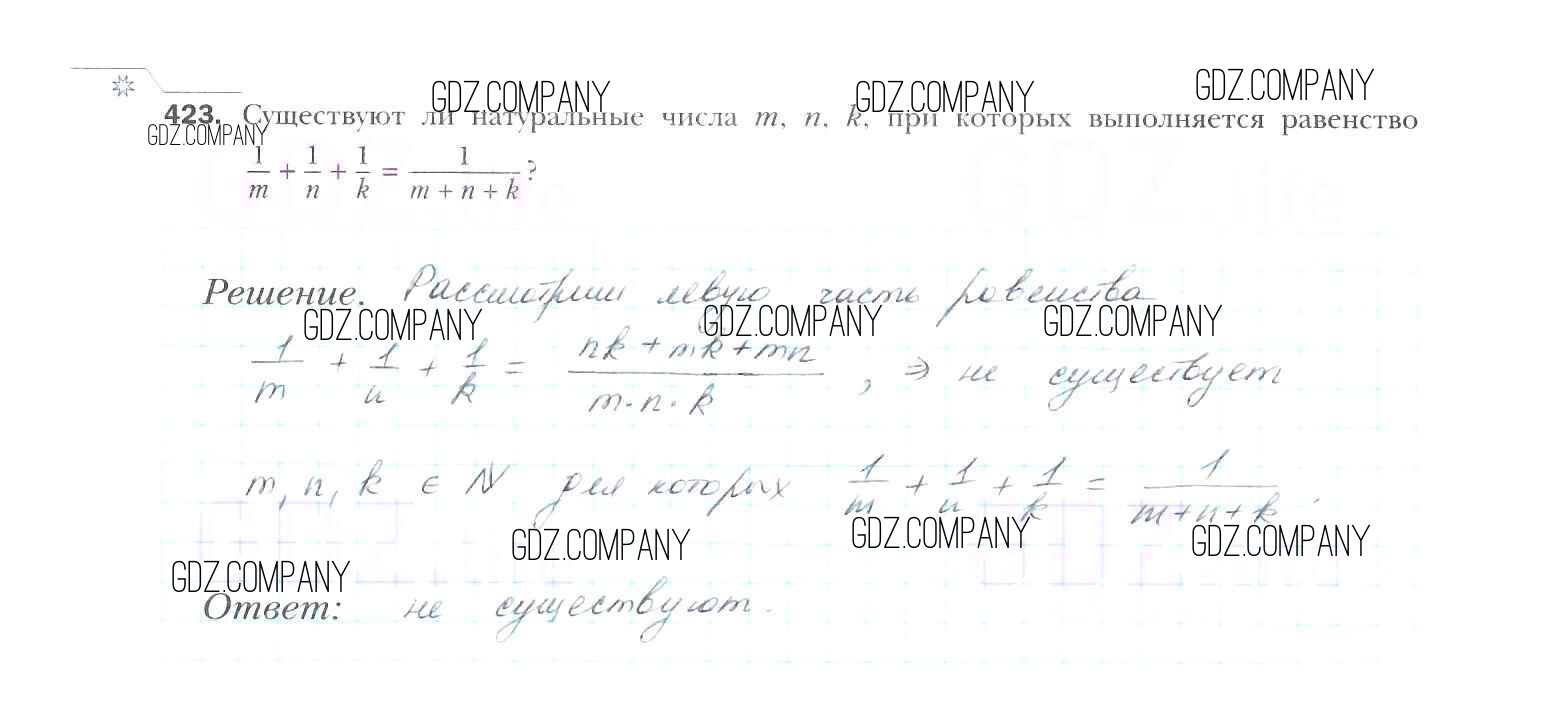 GDZ.COMPANY GDZ.COMPANY GDZ.COMPANY
423. Существуют ли натуральные числа m, n, k, при которых выполняется равенство
GDZ.COMPANY
1/m + 1/n + 1/k = 1/(m + n + k)?
GDZ.life GDZ.life
Решение. Рассмотрим левую часть равенства
GDZ.COMPANY GDZ.COMPANY GDZ.COMPANY
1/m + 1/n + 1/k = (nk + mk + mn)/(m·n·k), ⇒ не существует
m, n, k ∈ N для которых 1/m + 1/n + 1/k = 1/(m+n+k).
GDZ.COMPANY GDZ.COMPANY GDZ.COMPANY
GDZ.COMPANY
Ответ: не существуют.